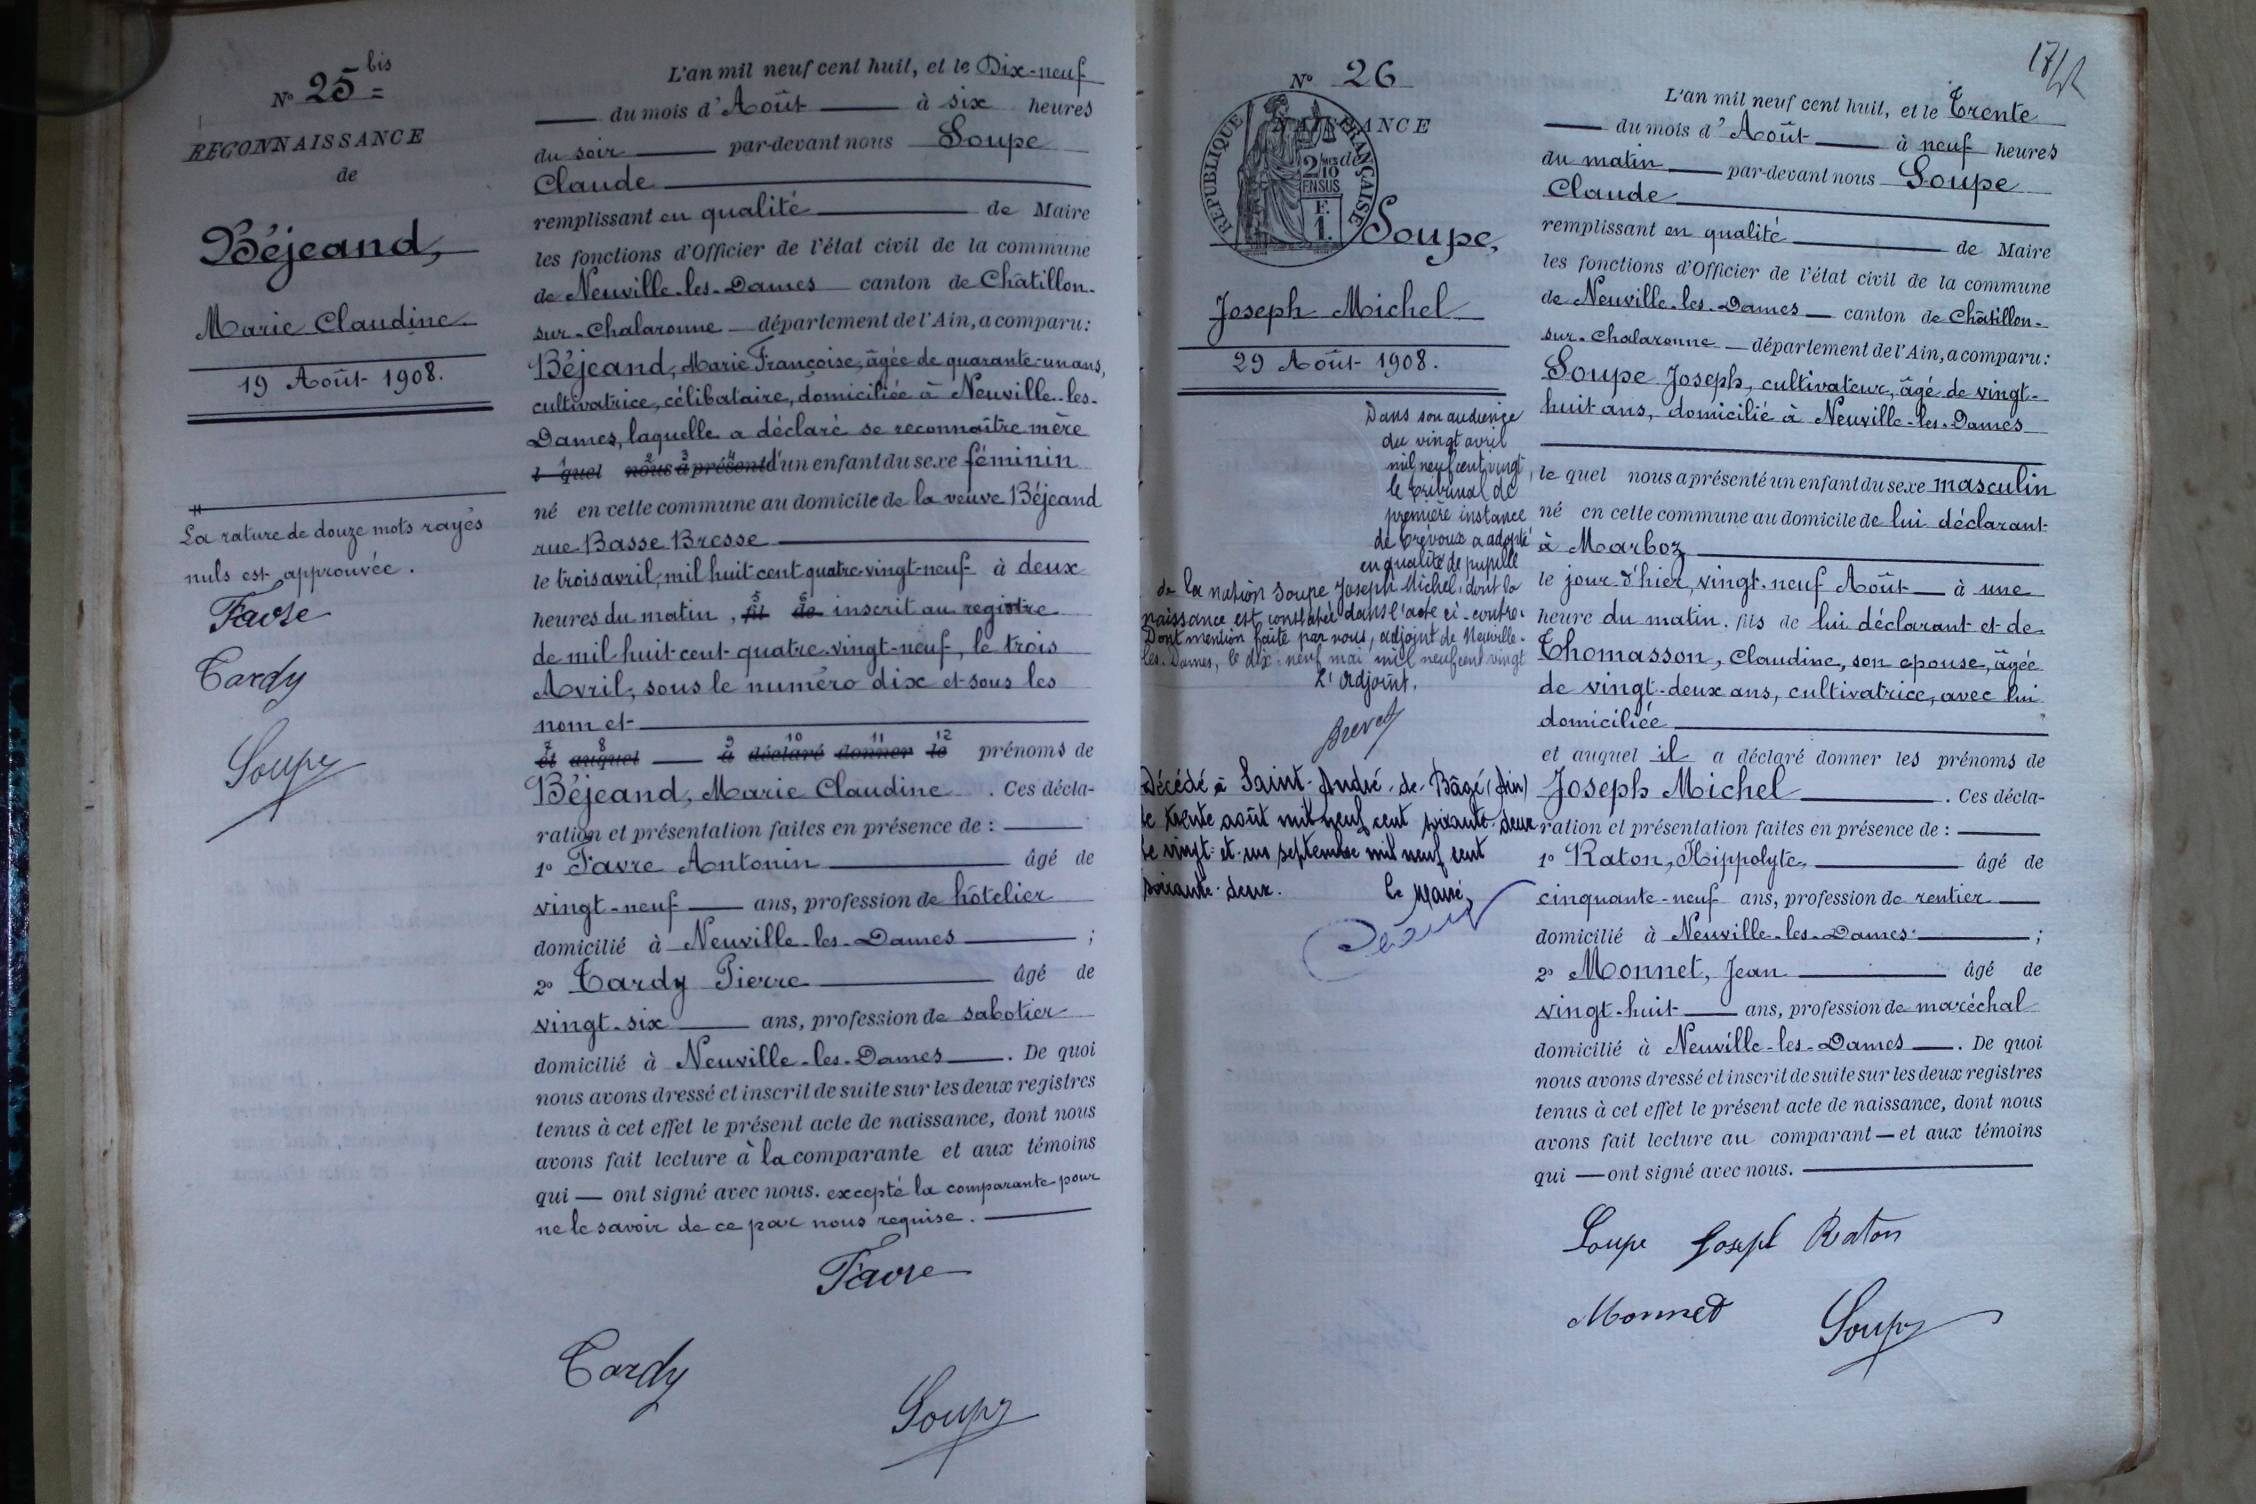 N° 25 bis
RECONNAISSANCE
de
Béjeand,
Marie Claudine
19 Août 1908.
La rature de douze mots rayés
nuls est approuvée.
Favre
Tardy
Soupe
L'an mil neuf cent huit, et le Dix-neuf
du mois d'Août à six heures
du soir par-devant nous Soupe
Claude
remplissant en qualité de Maire
les fonctions d'Officier de l'état civil de la commune
de Neuville-les-Dames canton de Châtillon-
sur-Chalaronne département de l'Ain, a comparu:
Béjeand, Marie Françoise, âgée de quarante-un ans,
cultivatrice, célibataire, domiciliée à Neuville-les-
Dames, laquelle a déclaré se reconnaître mère
1 2 3 4
l quel nous a présenté d'un enfant du sexe féminin
né en cette commune au domicile de la veuve Béjeand
rue Basse Bresse
le trois avril, mil huit cent quatre-vingt-neuf à deux
5 6
heures du matin, fil de inscrit au registre
de mil huit cent quatre-vingt-neuf, le trois
Avril, sous le numéro dix et sous les
nom et
7 8 9 10 11 12
et auquel a déclaré donner le prénoms de
Béjeand, Marie Claudine . Ces décla-
ration et présentation faites en présence de :
1° Favre Antonin âgé de
vingt-neuf ans, profession de hôtelier
domicilié à Neuville-les-Dames ;
2° Tardy Pierre âgé de
vingt-six ans, profession de sabotier
domicilié à Neuville-les-Dames . De quoi
nous avons dressé et inscrit de suite sur les deux registres
tenus à cet effet le présent acte de naissance, dont nous
avons fait lecture à la comparante et aux témoins
qui — ont signé avec nous. excepté la comparante pour
ne le savoir de ce par nous requise.
Favre
Tardy
Soupe
N° 26
NAISSANCE
RÉPUBLIQUE FRANÇAISE
2/10 de
EN SUS
F.
1.
Soupe,
Joseph Michel
29 Août 1908.
Dans son audience
du vingt avril
mil neuf cent vingt,
le tribunal de
première instance
de Trévoux a adopté
en qualité de pupille
de la nation Soupe Joseph Michel, dont la
naissance est constatée dans l'acte ci-contre.
Dont mention faite par nous, adjoint de Neuville-
les-Dames, le dix-neuf mai mil neuf cent vingt
L'adjoint,
Décédé à Saint-André-de-Bâgé (Ain)
le trente août mil neuf cent soixante-deux
le vingt-et-un septembre mil neuf cent
soixante-deux. Le Maire,
L'an mil neuf cent huit, et le Trente
du mois d'Août à neuf heures
du matin par-devant nous Soupe
Claude
remplissant en qualité de Maire
les fonctions d'Officier de l'état civil de la commune
de Neuville-les-Dames canton de Châtillon-
sur-Chalaronne département de l'Ain, a comparu:
Soupe Joseph, cultivateur, âgé de vingt-
huit ans, domicilié à Neuville-les-Dames
le quel nous a présenté un enfant du sexe masculin
né en cette commune au domicile de lui déclarant
à Marboz
le jour d'hier, vingt-neuf Août à une
heure du matin. fils de lui déclarant et de
Thomasson, Claudine, son épouse, âgée
de vingt-deux ans, cultivatrice, avec lui
domiciliée
et auquel il a déclaré donner les prénoms de
Joseph Michel . Ces décla-
ration et présentation faites en présence de :
1° Raton, Hippolyte, âgé de
cinquante-neuf ans, profession de rentier
domicilié à Neuville-les-Dames ;
2° Monnet, Jean âgé de
vingt-huit ans, profession de maréchal
domicilié à Neuville-les-Dames . De quoi
nous avons dressé et inscrit de suite sur les deux registres
tenus à cet effet le présent acte de naissance, dont nous
avons fait lecture au comparant — et aux témoins
qui — ont signé avec nous.
Soupe Joseph Raton
Monnet Soupe